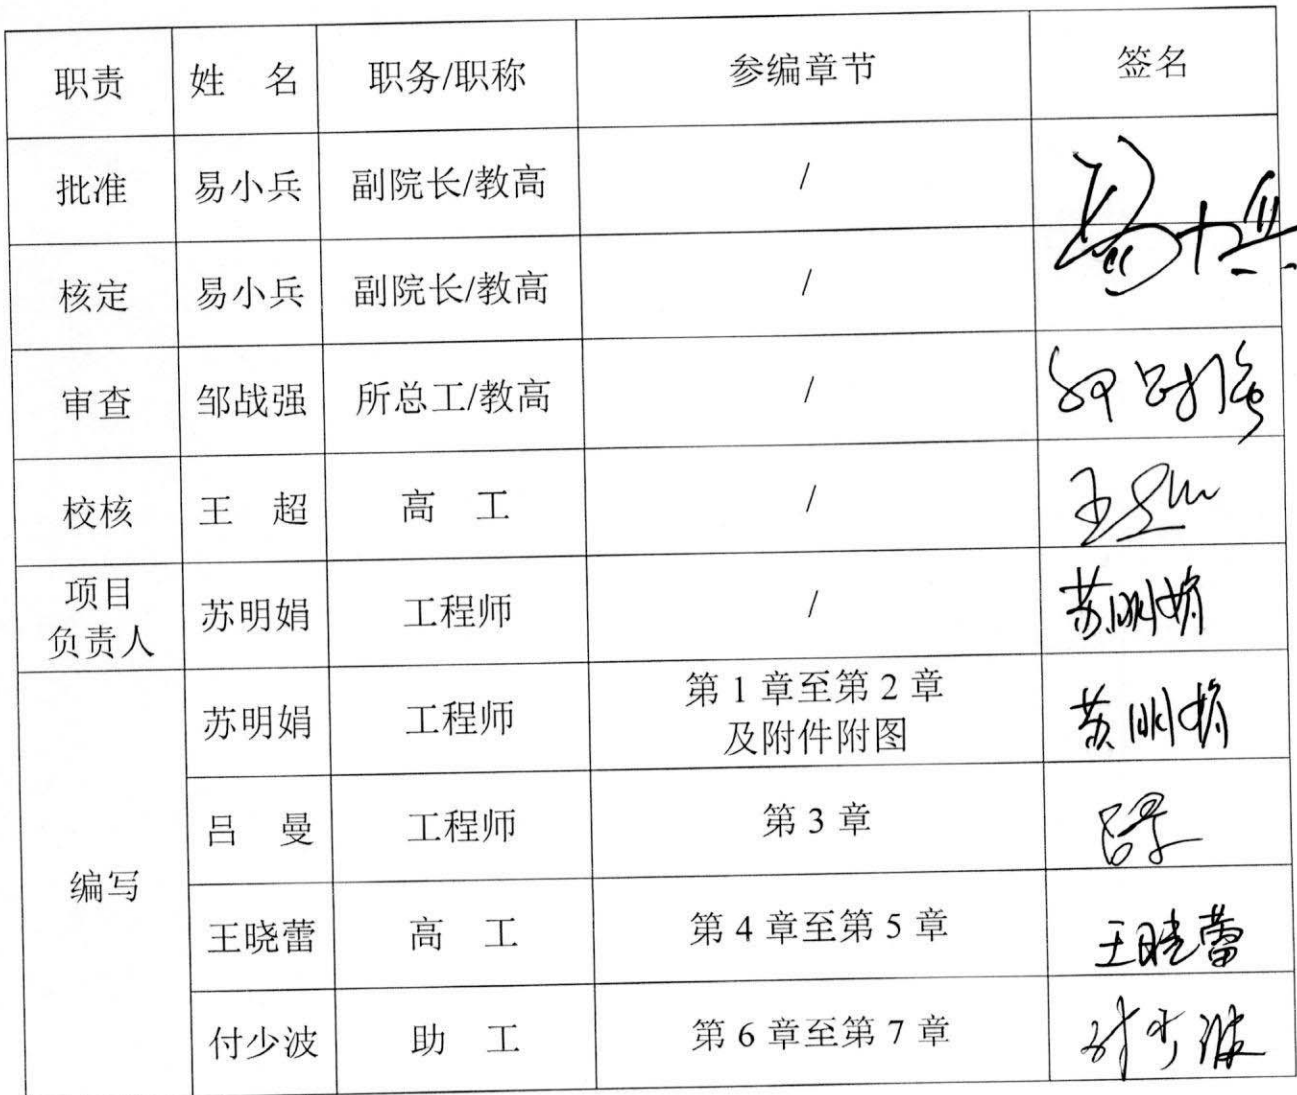 职责 姓 名 职务/职称 参编章节 签名
批准 易小兵 副院长/教高 /
核定 易小兵 副院长/教高 / 易小兵
审查 邹战强 所总工/教高 / 邹战强
校核 王 超 高 工 / 王超
项目
负责人 苏明娟 工程师 / 苏明娟
编写 苏明娟 工程师 第1章至第2章
及附件附图 苏明娟
吕 曼 工程师 第3章 吕曼
王晓蕾 高 工 第4章至第5章 王晓蕾
付少波 助 工 第6章至第7章 付少波